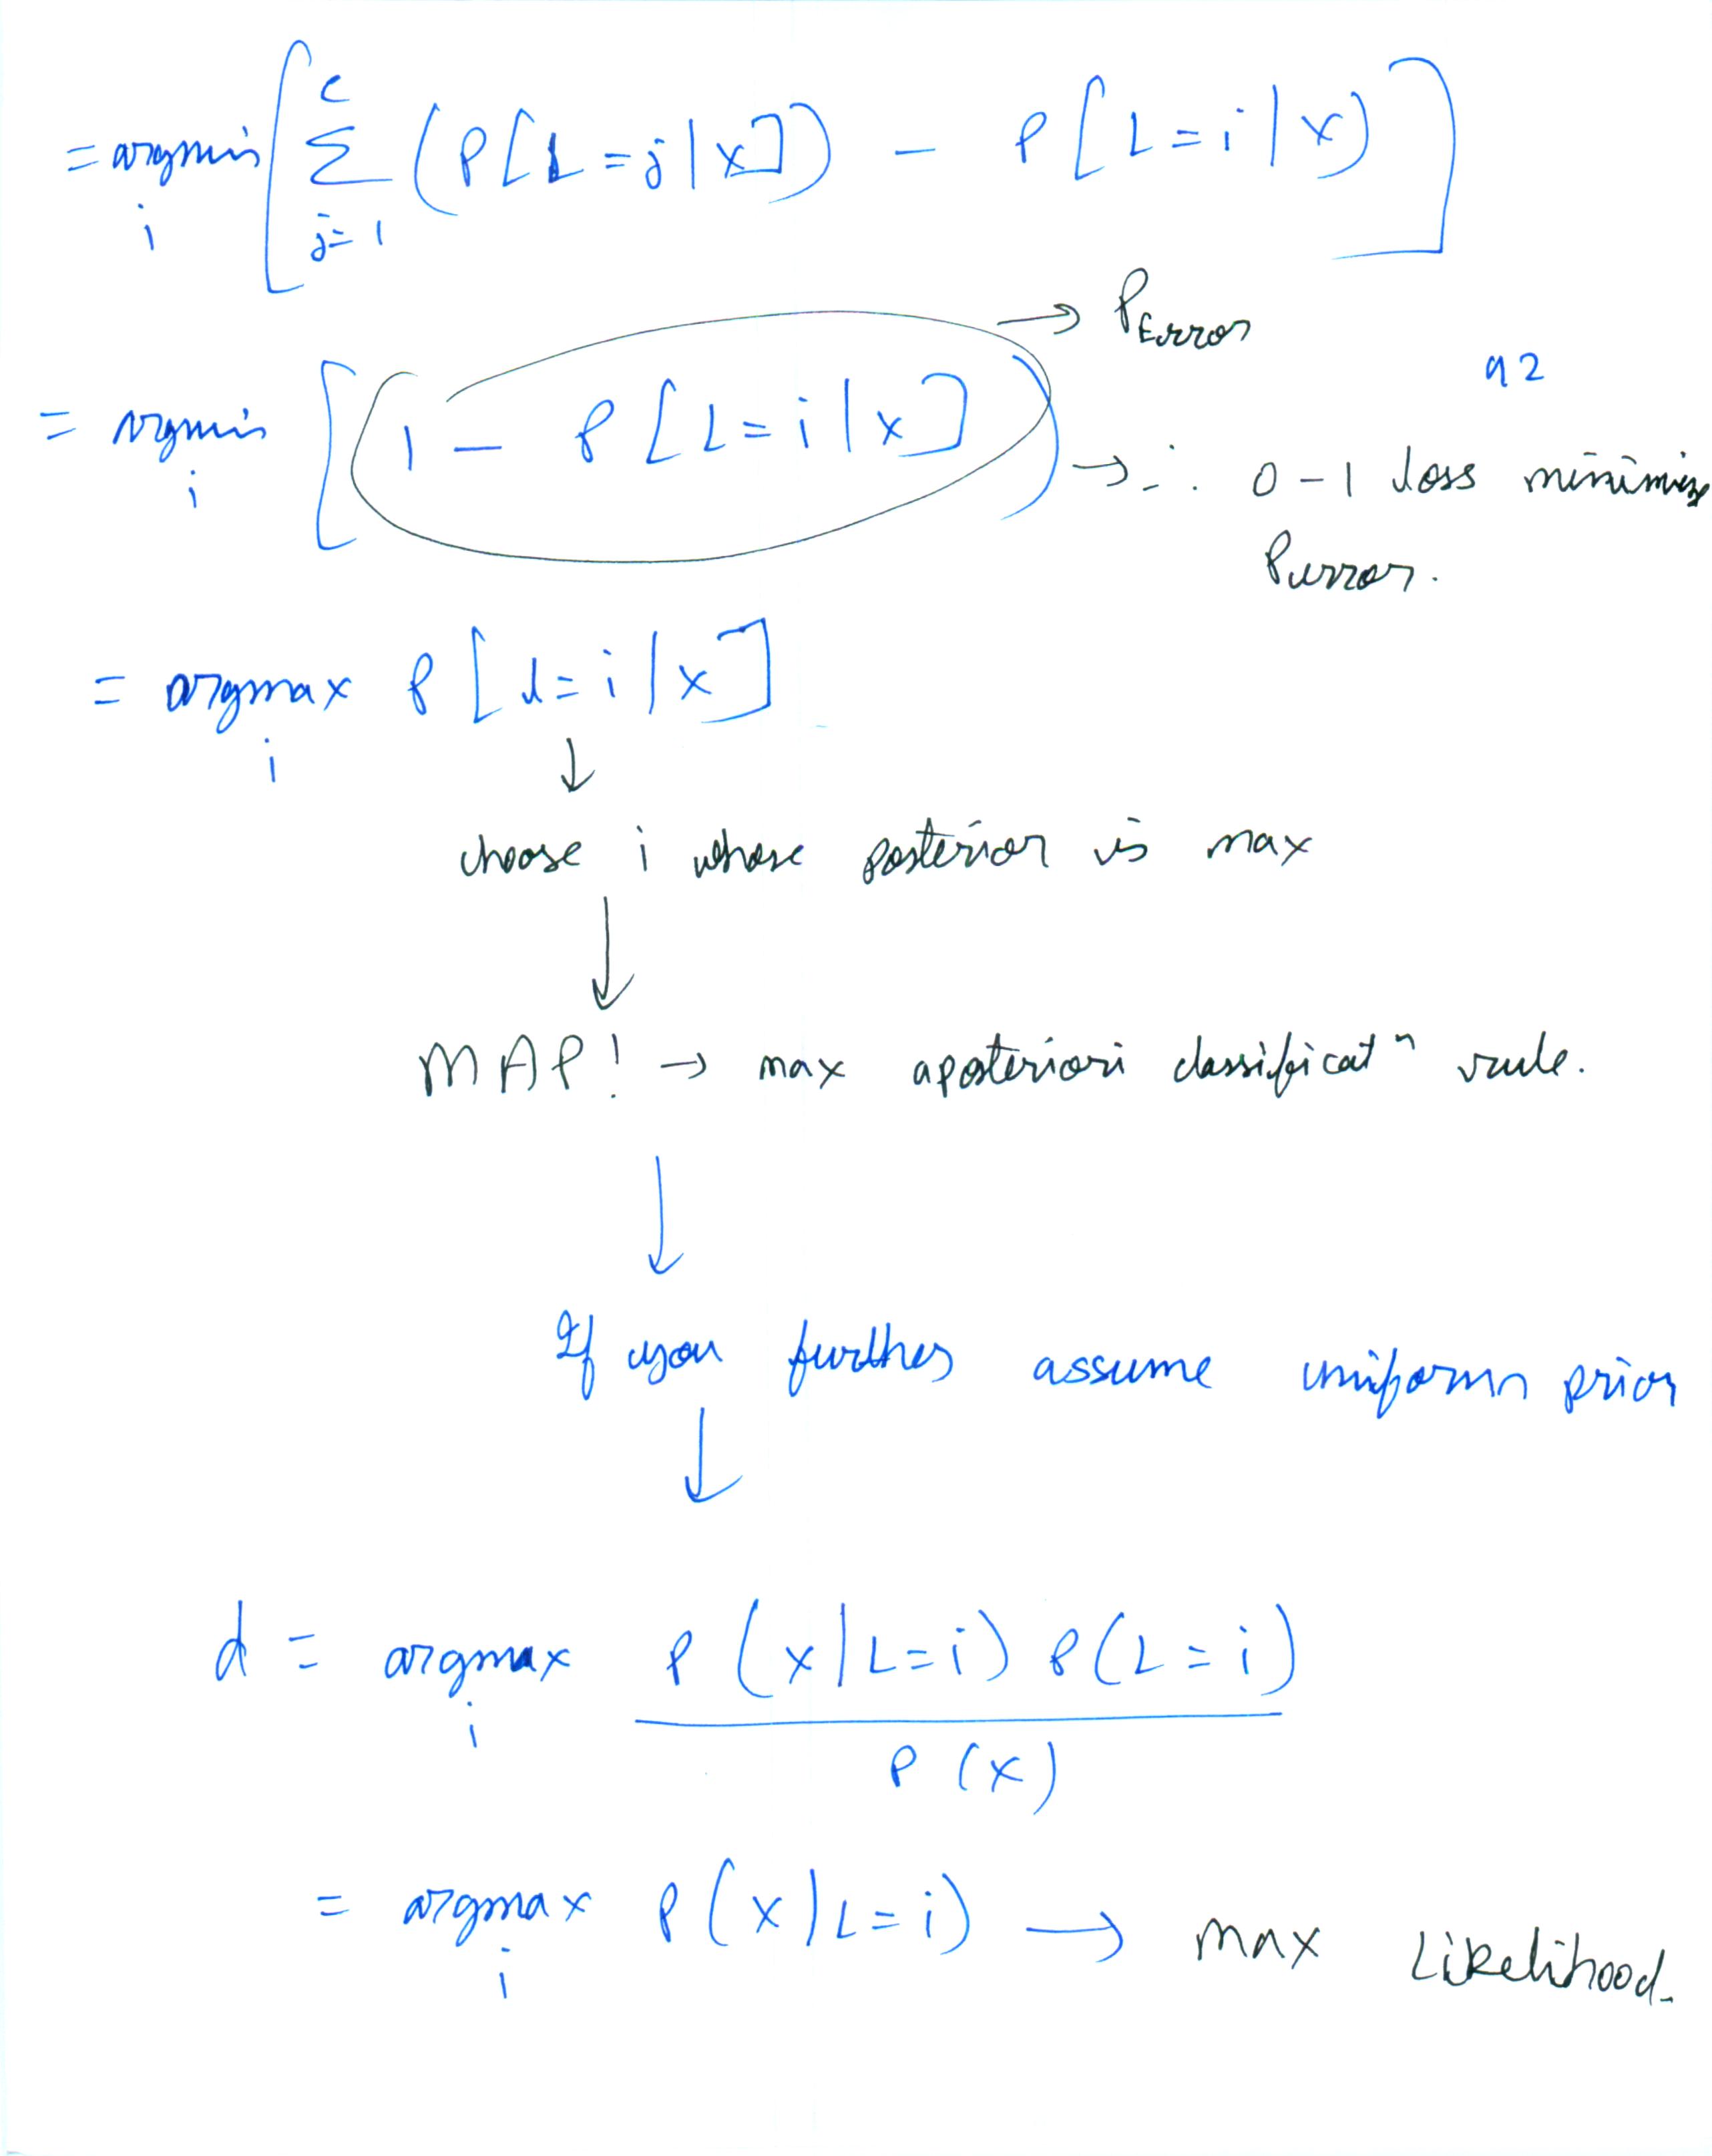 = argmin_i [ Σ_{j=1}^{c} (P[L=j|x]) − P[L=i|x) ]
→ P_Error
92
= argmin_i [ 1 − P[L=i|x] ) → ∴ 0-1 loss minimizes
Perror.
= argmax_i P[L=i|x]
↓
choose i whose posterior is max
↓
MAP! → max aposteriori classificatⁿ rule.
↓
If you further assume uniform prior
↓
d = argmax_i P(x|L=i) P(L=i) / P(x)
= argmax_i P(x|L=i) → max Likelihood.